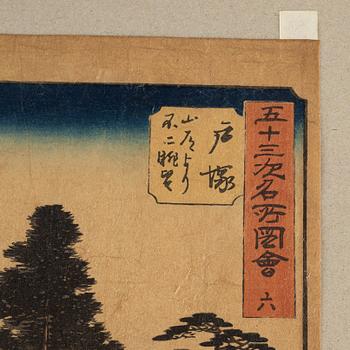 五十三次名所図會
六
戸塚
山道より
不二眺望